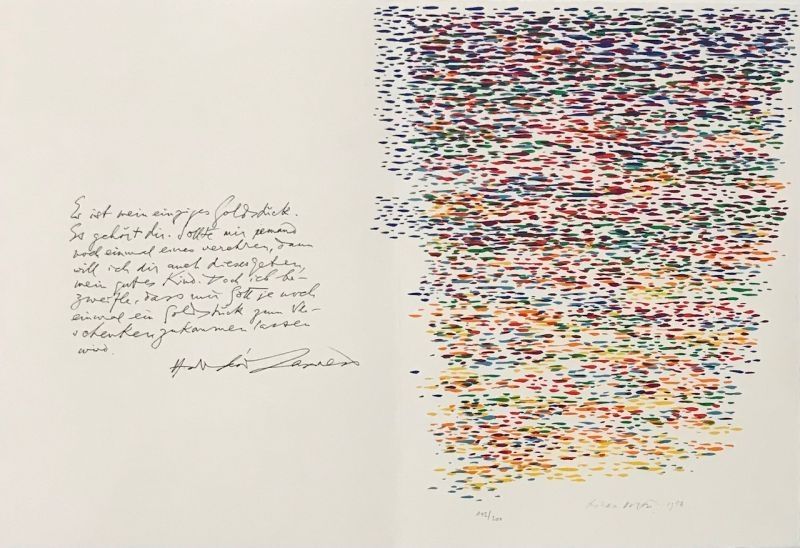 Es ist mein einziges Goldstück.
Es gehört dir. Sollte mir jemand
noch einmal eines verehren, dann
will ich dir auch dieses geben,
mein gutes Kind. Doch ich be-
zweifle, dass mir Gott je noch
einmal ein Goldstück zum Ver-
schenken zukommen lassen
wird.
/200